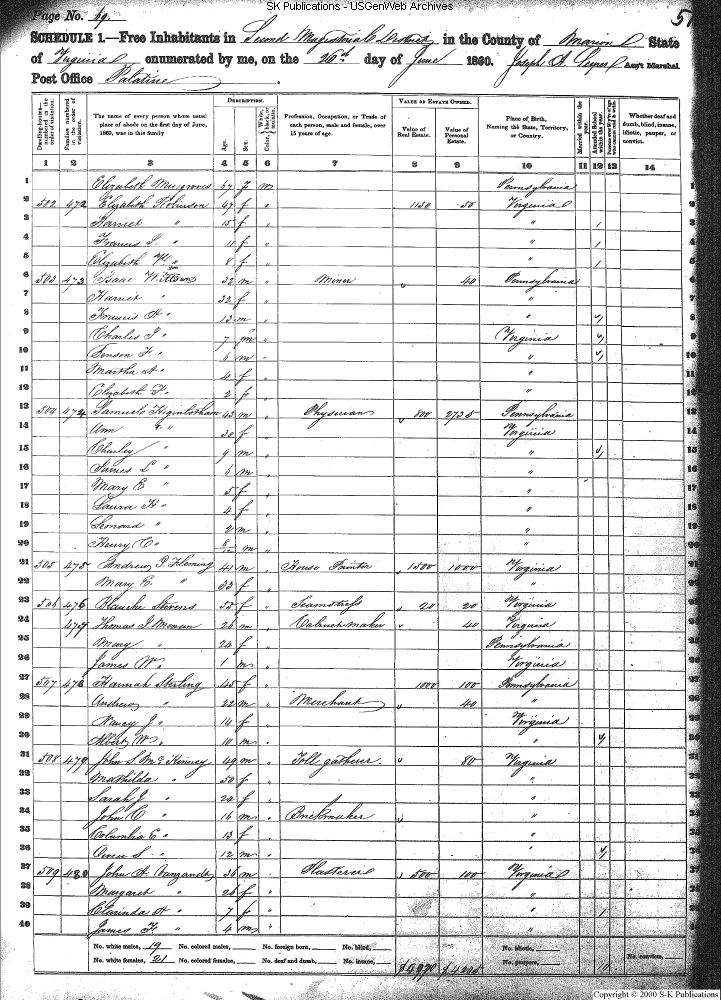 SK Publications - USGenWeb Archives
Page No. 69.
SCHEDULE 1.—Free Inhabitants in Second Magisterial District in the County of Marion State
of Virginia enumerated by me, on the 26th day of June 1860. Joseph Ass't Marshal.
Post Office Palatine
Dwelling-houses— numbered in the order of visitation.
Families numbered in the order of visitation.
The name of every person whose usual place of abode on the first day of June, 1860, was in this family
DESCRIPTION.
Age.
Sex.
Color, White, black, or mulatto.
Profession, Occupation, or Trade of each person, male and female, over 15 years of age.
VALUE OF ESTATE OWNED.
Value of Real Estate.
Value of Personal Estate.
Place of Birth, Naming the State, Territory, or Country.
Married within the year.
Attended School within the year.
Whether deaf and dumb, blind, insane, idiotic, pauper, or convict.
1 2 3 4 5 6 7 8 9 10 11 12 13 14
1 Elizabeth Musgroves 67 f m Pennsylvania 1
2 502 472 Elizabeth Robinson 47 f " 1150 50 Virginia 2
3 Harriet " 15 f " " / 3
4 Francis J. " 11 f " " / 4
5 Elizabeth W. " 8 f " " / 5
6 503 473 Isaac 32 m " Miner 40 Pennsylvania 6
7 Harriet " 32 f " " 7
8 Francis A. " 13 m " " / 8
9 Charles J. " 7 m " Virginia / 9
10 F. " 6 m " " / 10
11 Martha A. " 4 f " " 11
12 Elizabeth F. " 2 f " " 12
13 504 474 Samuel Higinbotham 43 m " Physician 800 2735 Pennsylvania 13
14 Ann " 30 f " Virginia 14
15 Charley " 9 m " " / 15
16 James L " 6 m " " 16
17 Mary E " 5 f " " 17
18 Laura H " 4 f " " 18
19 Leonard " 2 m " " 19
20 Henry C " 8/12 m " " 20
21 505 475 Andrew P. Fleming 41 m " House Painter 1500 1000 Virginia 21
22 Mary E. " 33 f " " 22
23 506 476 Blanche Stevens 55 f " Seamstress 20 20 Virginia 23
24 477 Thomas J. 26 m " Cabinet maker 40 Virginia 24
25 Mary " 24 f " Pennsylvania 25
26 James W. " 1 m " Virginia 26
27 507 478 Hannah Sterling 45 f " 1000 100 Pennsylvania 27
28 Andrew " 22 m " Merchant 40 " 28
29 Nancy J " 14 f " Virginia 29
30 Albert W. " 10 m " " / 30
31 508 479 John S. McKinney 49 m " Toll gatherer 80 Virginia 31
32 Mathilda " 50 f " " 32
33 Sarah J " 20 f " " 33
34 John C " 16 m " Brickmaker " 34
35 Columbia E " 13 f " " 35
36 Owen S. " 12 m " " / 36
37 509 480 John A. Vanzandt 36 m " Plasterer 500 100 Virginia 37
38 Margaret " 26 f " " 38
39 Clarinda A " 7 f " " / 39
40 James H " 4 m " " 40
No. white males, 19 No. colored males, No. foreign born, No. blind, No. idiotic,
No. white females, 21 No. colored females, No. deaf and dumb, No. insane, $4970 No. paupers, No. convicts,
Copyright © 2000 S-K Publications